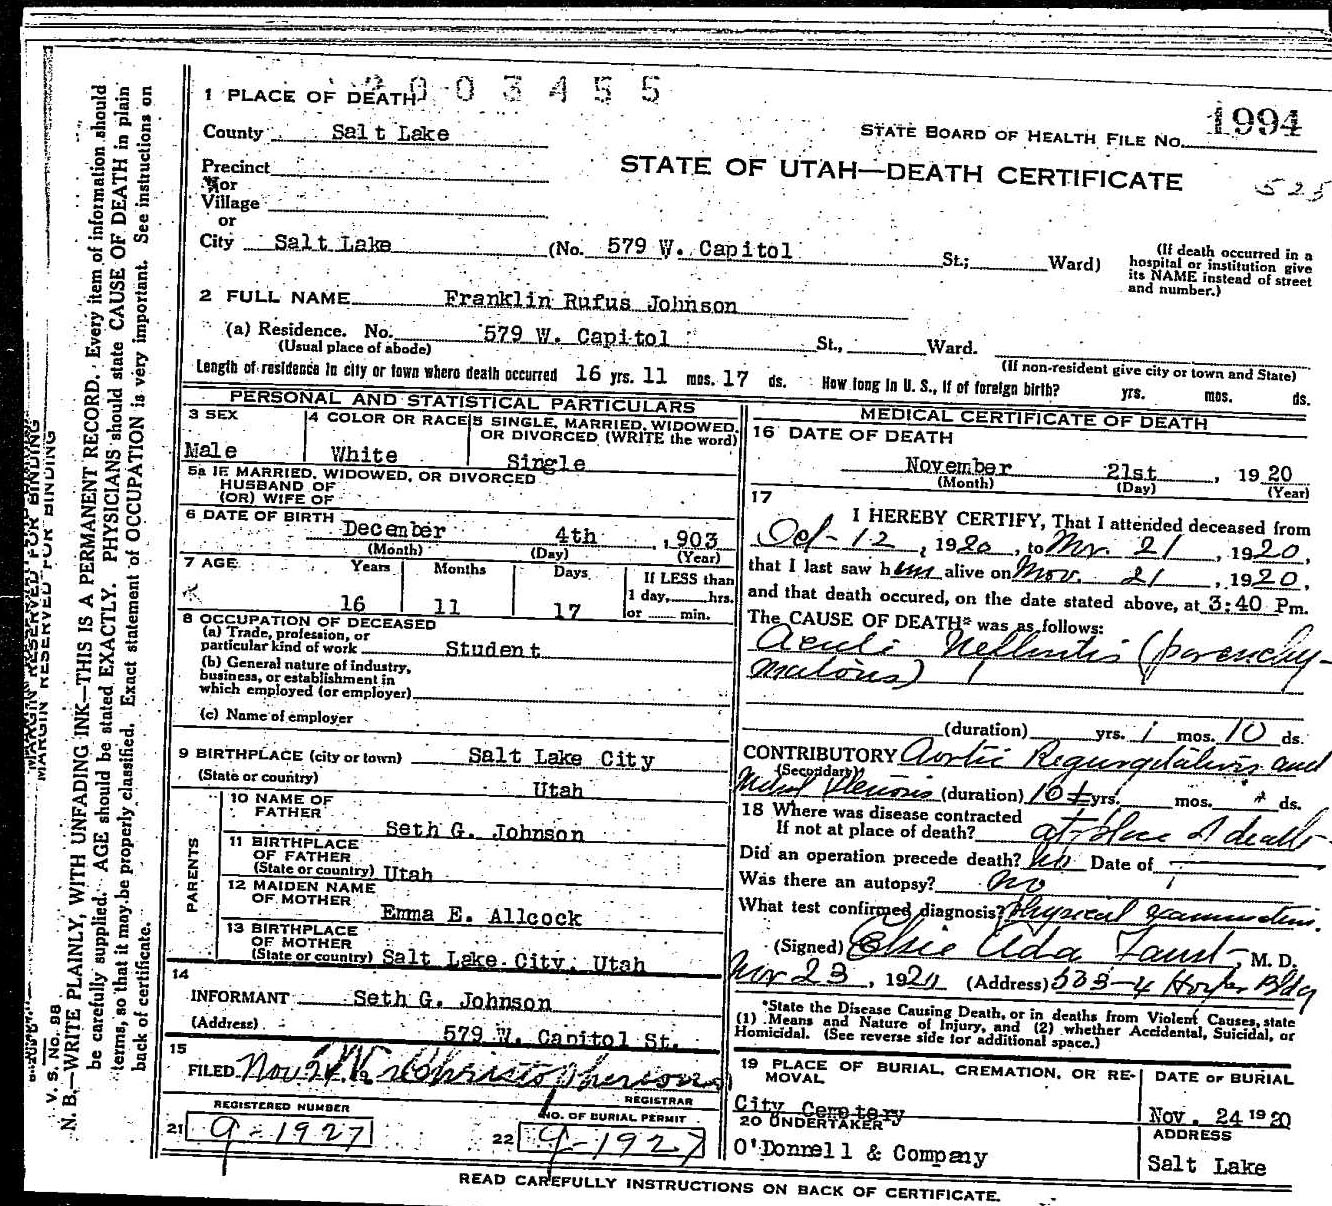 2003455
1 PLACE OF DEATH
County Salt Lake
STATE BOARD OF HEALTH FILE NO. 1994
Precinct
or
Village
or
STATE OF UTAH—DEATH CERTIFICATE
525
City Salt Lake (No. 579 W. Capitol St.; Ward)
(If death occurred in a
hospital or institution give
its NAME instead of street
and number.)
2 FULL NAME Franklin Rufus Johnson
(a) Residence. No. 579 W. Capitol St., Ward.
(Usual place of abode)
(If non-resident give city or town and State)
Length of residence in city or town where death occurred 16 yrs. 11 mos. 17 ds. How long in U. S., if of foreign birth? yrs. mos. ds.
PERSONAL AND STATISTICAL PARTICULARS
3 SEX
Male
4 COLOR OR RACE
White
5 SINGLE, MARRIED, WIDOWED,
OR DIVORCED (WRITE the word)
Single
5a IF MARRIED, WIDOWED, OR DIVORCED
HUSBAND OF
(OR) WIFE OF
6 DATE OF BIRTH
December 4th , 1903
(Month) (Day) (Year)
7 AGE Years Months Days
If LESS than
1 day, hrs.
or min.
16 11 17
8 OCCUPATION OF DECEASED
(a) Trade, profession, or
particular kind of work Student
(b) General nature of industry,
business, or establishment in
which employed (or employer)
(c) Name of employer
9 BIRTHPLACE (city or town) Salt Lake City
(State or country) Utah
PARENTS
10 NAME OF
FATHER Seth G. Johnson
11 BIRTHPLACE
OF FATHER
(State or country) Utah
12 MAIDEN NAME
OF MOTHER Emma E. Allcock
13 BIRTHPLACE
OF MOTHER
(State or country) Salt Lake City, Utah
14
INFORMANT Seth G. Johnson
(Address) 579 W. Capitol St.
15
FILED Nov
REGISTRAR
REGISTERED NUMBER
21 9-1927
NO. OF BURIAL PERMIT
22 9-1927
MEDICAL CERTIFICATE OF DEATH
16 DATE OF DEATH
November 21st , 1920
(Month) (Day) (Year)
17
I HEREBY CERTIFY, That I attended deceased from
Oct-12 , 1920 , to Nov. 21 , 1920,
that I last saw him alive on Nov. 21 , 1920,
and that death occured, on the date stated above, at 3:40 Pm.
The CAUSE OF DEATH* was as follows:
Acute Nephritis (parenchy-
matous)
(duration) yrs. 1 mos. 10 ds.
CONTRIBUTORY Aortic Regurgitation and
(Secondary)
Mitral Stenosis (duration) 10± yrs. mos. ds.
18 Where was disease contracted
If not at place of death? at place of death
Did an operation precede death? No Date of
Was there an autopsy? No
What test confirmed diagnosis? Physical examination.
(Signed) Elsie Ada Faust, M. D.
Nov 23, 1920 (Address) 533-4 Bldg
*State the Disease Causing Death, or in deaths from Violent Causes, state
(1) Means and Nature of Injury, and (2) whether Accidental, Suicidal, or
Homicidal. (See reverse side for additional space.)
19 PLACE OF BURIAL, CREMATION, OR RE-
MOVAL
City Cemetery
DATE OF BURIAL
Nov. 24 1920
20 UNDERTAKER
O'Donnell & Company
ADDRESS
Salt Lake
READ CAREFULLY INSTRUCTIONS ON BACK OF CERTIFICATE.
MARGIN RESERVED FOR BINDING
V. S. No. 98
N. B.—WRITE PLAINLY, WITH UNFADING INK—THIS IS A PERMANENT RECORD. Every item of information should
be carefully supplied. AGE should be stated EXACTLY. PHYSICIANS should state CAUSE OF DEATH in plain
terms, so that it may be properly classified. Exact statement of OCCUPATION is very important. See instructions on
back of certificate.